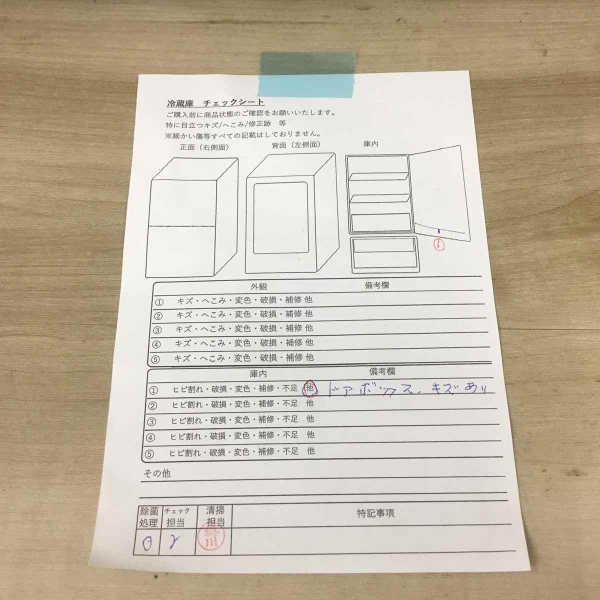 冷蔵庫 チェックシート
ご購入前に商品状態のご確認をお願いいたします。
特に目立つキズ/へこみ/修正跡 等
※細かい傷等すべての記載はしておりません。
正面（右側面） 背面（左側面） 庫内
①
外観 備考欄
① キズ・へこみ・変色・破損・補修 他
② キズ・へこみ・変色・破損・補修 他
③ キズ・へこみ・変色・破損・補修 他
④ キズ・へこみ・変色・破損・補修 他
⑤ キズ・へこみ・変色・破損・補修 他
庫内 備考欄
① ヒビ割れ・破損・変色・補修・不足 他 ドアボックス、キズあり
② ヒビ割れ・破損・変色・補修・不足 他
③ ヒビ割れ・破損・変色・補修・不足 他
④ ヒビ割れ・破損・変色・補修・不足 他
⑤ ヒビ割れ・破損・変色・補修・不足 他
その他
除菌処理 チェック担当 清掃担当 特記事項